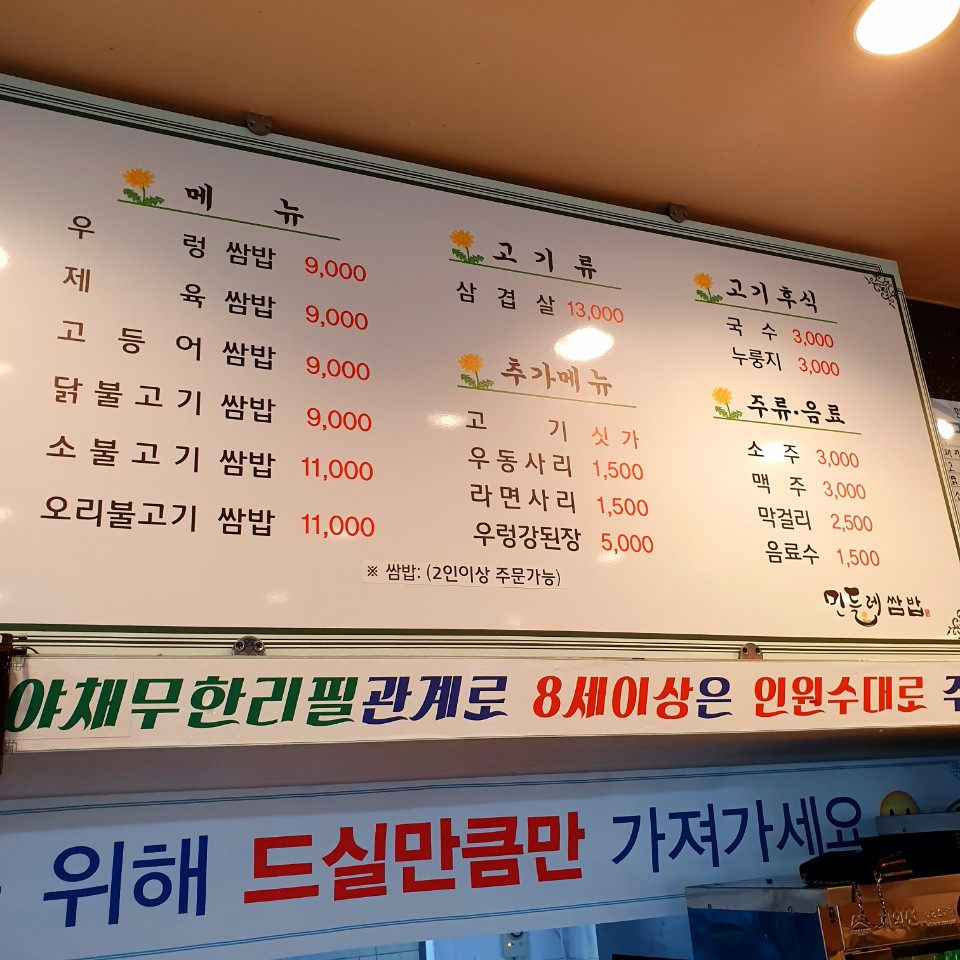 메 뉴
우 렁 쌈밥 9,000
제 육 쌈밥 9,000
고 등 어 쌈밥 9,000
닭 불 고 기 쌈밥 9,000
소 불 고 기 쌈밥 11,000
오리불고기 쌈밥 11,000
고 기 류
삼 겹 살 13,000
추가메뉴
고 기 싯 가
우동사리 1,500
라면사리 1,500
우렁강된장 5,000
고기후식
국 수 3,000
누룽지 3,000
주류·음료
소 주 3,000
맥 주 3,000
막걸리 2,500
음료수 1,500
※ 쌈밥: (2인이상 주문가능)
민들레쌈밥
야채무한리필관계로 8세이상은 인원수대로
위해 드실만큼만 가져가세요